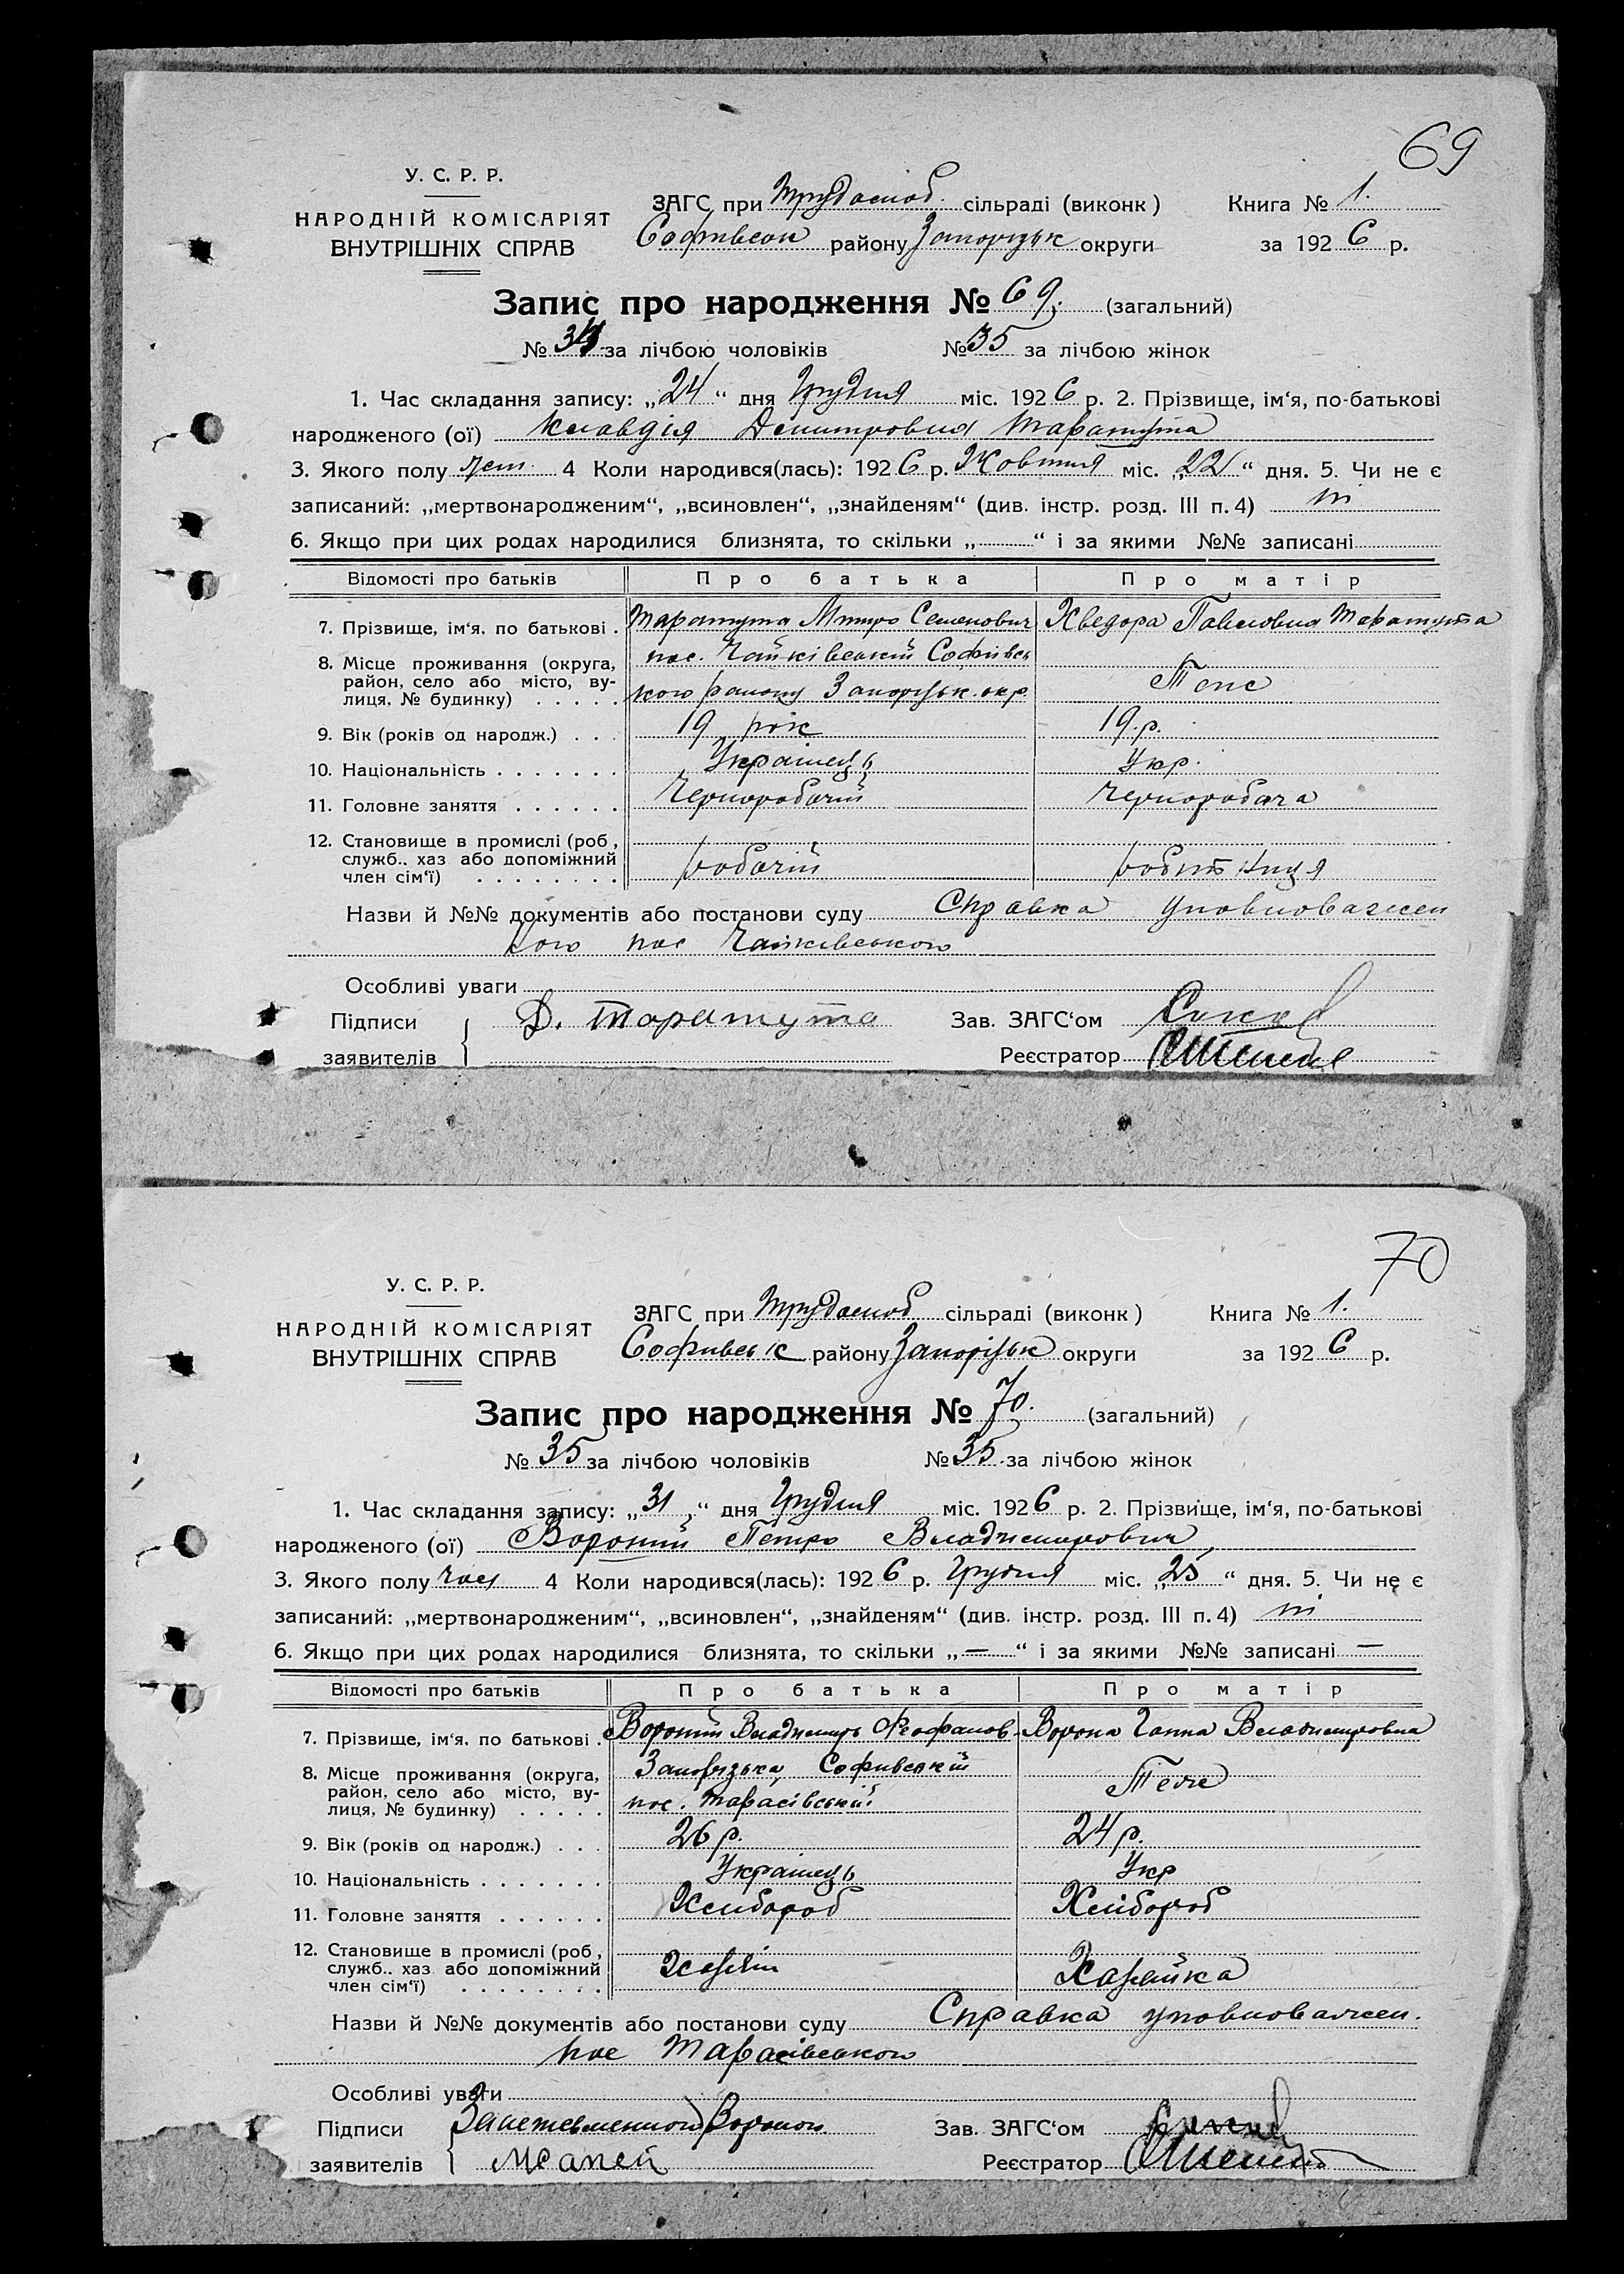 69
У. С. Р. Р.
НАРОДНІЙ КОМІСАРІЯТ
ВНУТРІШНІХ СПРАВ
ЗАГС при Трудолюб. сільраді (виконк)
Софивськ району Запорізьк округи
Книга № 1.
за 1926 р.
Запис про народження № 69. (загальний)
№ 34 за лічбою чоловіків № 35 за лічбою жінок
1. Час складання запису: „24“ дня Грудня міс. 1926 р. 2. Прізвище, ім‘я, по-батькові
народженого (ої) Клавдія Дмитровна Таратута
3. Якого полу жен. 4 Коли народився(лась): 1926 р. Жовтня міс. „22“ дня. 5. Чи не є
записаний: „мертвонародженим“, „всиновлен“, „знайденям“ (див. інстр. розд. III п. 4) ні
6. Якщо при цих родах народилися близнята, то скільки „ “ і за якими №№ записані
Відомості про батьків Про батька Про матір
7. Прізвище, ім‘я. по батькові . Таратута Митро Семенович Хведора Павловна Таратута
8. Місце проживання (округа, район, село або місто, вулиця, № будинку) . . . . . пос. Чайківський Софиівсь
кого району Запорізьк. окр. Теж
9. Вік (років од народж.) . . . 19 рік 19 р.
10. Національність . . . . . . . Українець Укр.
11. Головне заняття . . . . . . Чернорабочій Чернорабоча
12. Становище в промислі (роб, служб.. хаз або допоміжний член сім‘ї) . . . . . . . . робочій робітниця
Назви й №№ документів або постанови суду Справка уповноважен
ного пос Чайківського
Особливі уваги
Підписи заявителів Д. Таратута
Зав. ЗАГС‘ом
Реєстратор
70
У. С. Р. Р.
НАРОДНІЙ КОМІСАРІЯТ
ВНУТРІШНІХ СПРАВ
ЗАГС при Трудолюб. сільраді (виконк)
Софивськ району Запорізьк округи
Книга № 1.
за 1926 р.
Запис про народження № 70. (загальний)
№ 35 за лічбою чоловіків № 35 за лічбою жінок
1. Час складання запису: „31“ дня Грудня міс. 1926 р. 2. Прізвище, ім‘я, по-батькові
народженого (ої) Вороний Петро Владимирович
3. Якого полу чол 4 Коли народився(лась): 1926 р. Грудня міс. „25“ дня. 5. Чи не є
записаний: „мертвонародженим“, „всиновлен“, „знайденям“ (див. інстр. розд. III п. 4) ні
6. Якщо при цих родах народилися близнята, то скільки „—“ і за якими №№ записані —
Відомості про батьків Про батька Про матір
7. Прізвище, ім‘я. по батькові . Вороний Владимирь Феофанов Ворона Ганна Владимировна
8. Місце проживання (округа, район, село або місто, вулиця, № будинку) . . . . . Запорізька, Софивський
пос. Тарасівський Теже
9. Вік (років од народж.) . . . 26 р. 24 р.
10. Національність . . . . . . . Українець Укр
11. Головне заняття . . . . . . Хлибороб Хлібороб
12. Становище в промислі (роб, служб.. хаз або допоміжний член сім‘ї) . . . . . . . . Хазяїн Хазяйка
Назви й №№ документів або постанови суду Справка уповноважен.
пос Тарасівського
Особливі уваги
Підписи заявителів
Зав. ЗАГС‘ом
Реєстратор